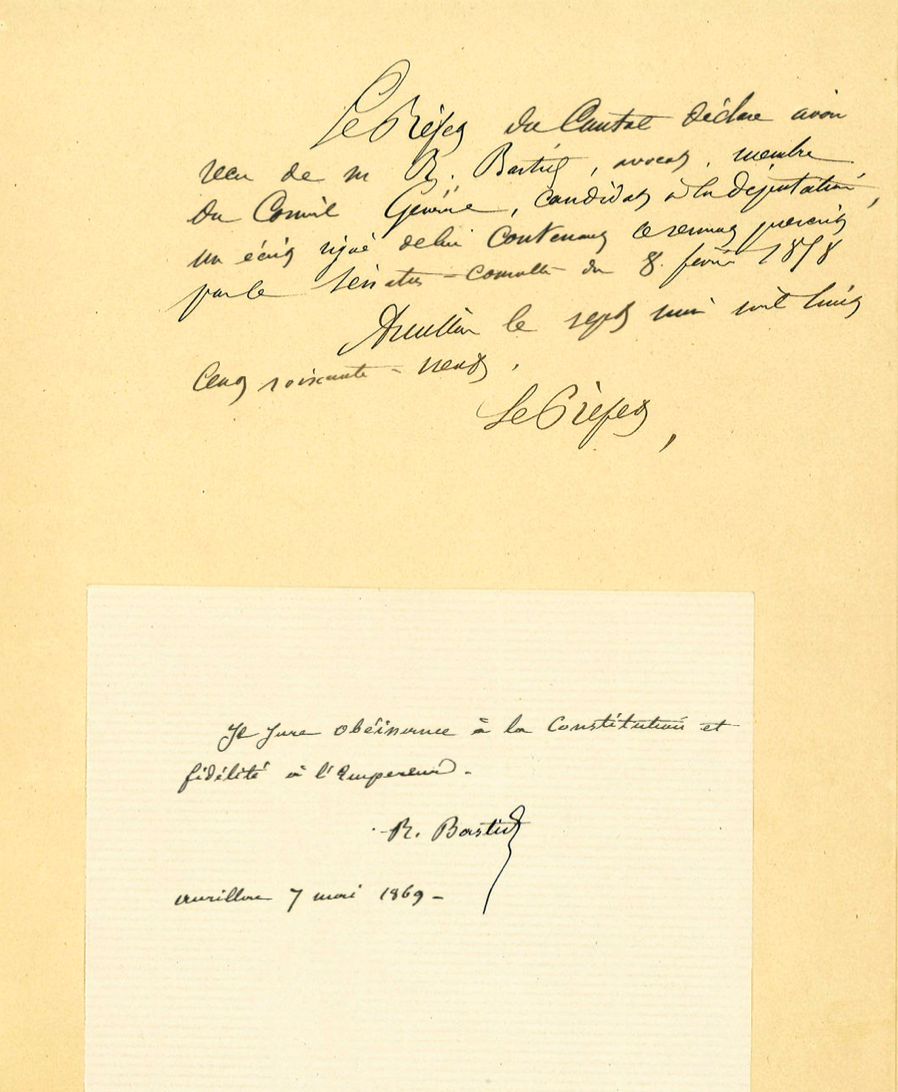 Le Préfet du Cantal déclare avoir
reçu de m R. Bastid, avocat, membre
du Conseil Général, candidat à la députation,
un écrit signé de lui contenant le serment prescrit
par le Sénatus-Consulte du 8 février 1858
Aurillac le sept mai mil huit
Cent soixante-neuf.
Le Préfet,
Je jure obéissance à la Constitution et
fidélité à l'Empereur.
R. Bastid
aurillac 7 mai 1869-